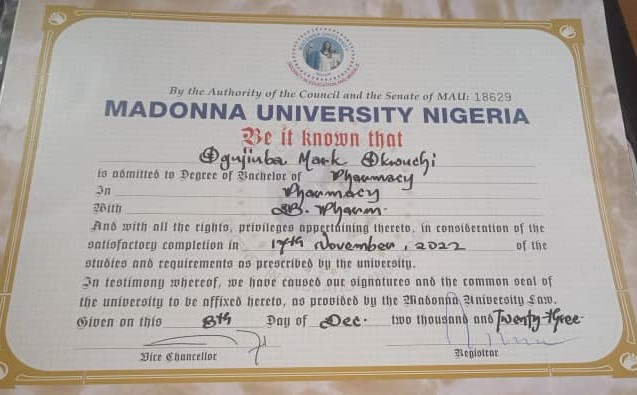 By the Authority of the Council and the Senate of MAU: 18629
MADONNA UNIVERSITY NIGERIA
Be it known that
Ogujiuba Mark Okwuchi
is admitted to Degree of Bachelor of Pharmacy
In Pharmacy
With B. Pharm.
And with all the rights, privileges appertaining thereto, in consideration of the
satisfactory completion in 17th November, 2022 of the
studies and requirements as prescribed by the university.
In testimony whereof, we have caused our signatures and the common seal of
the university to be affixed hereto, as provided by the Madonna University Law.
Given on this 8th Day of Dec. two thousand and Twenty-three.
Vice Chancellor Registrar